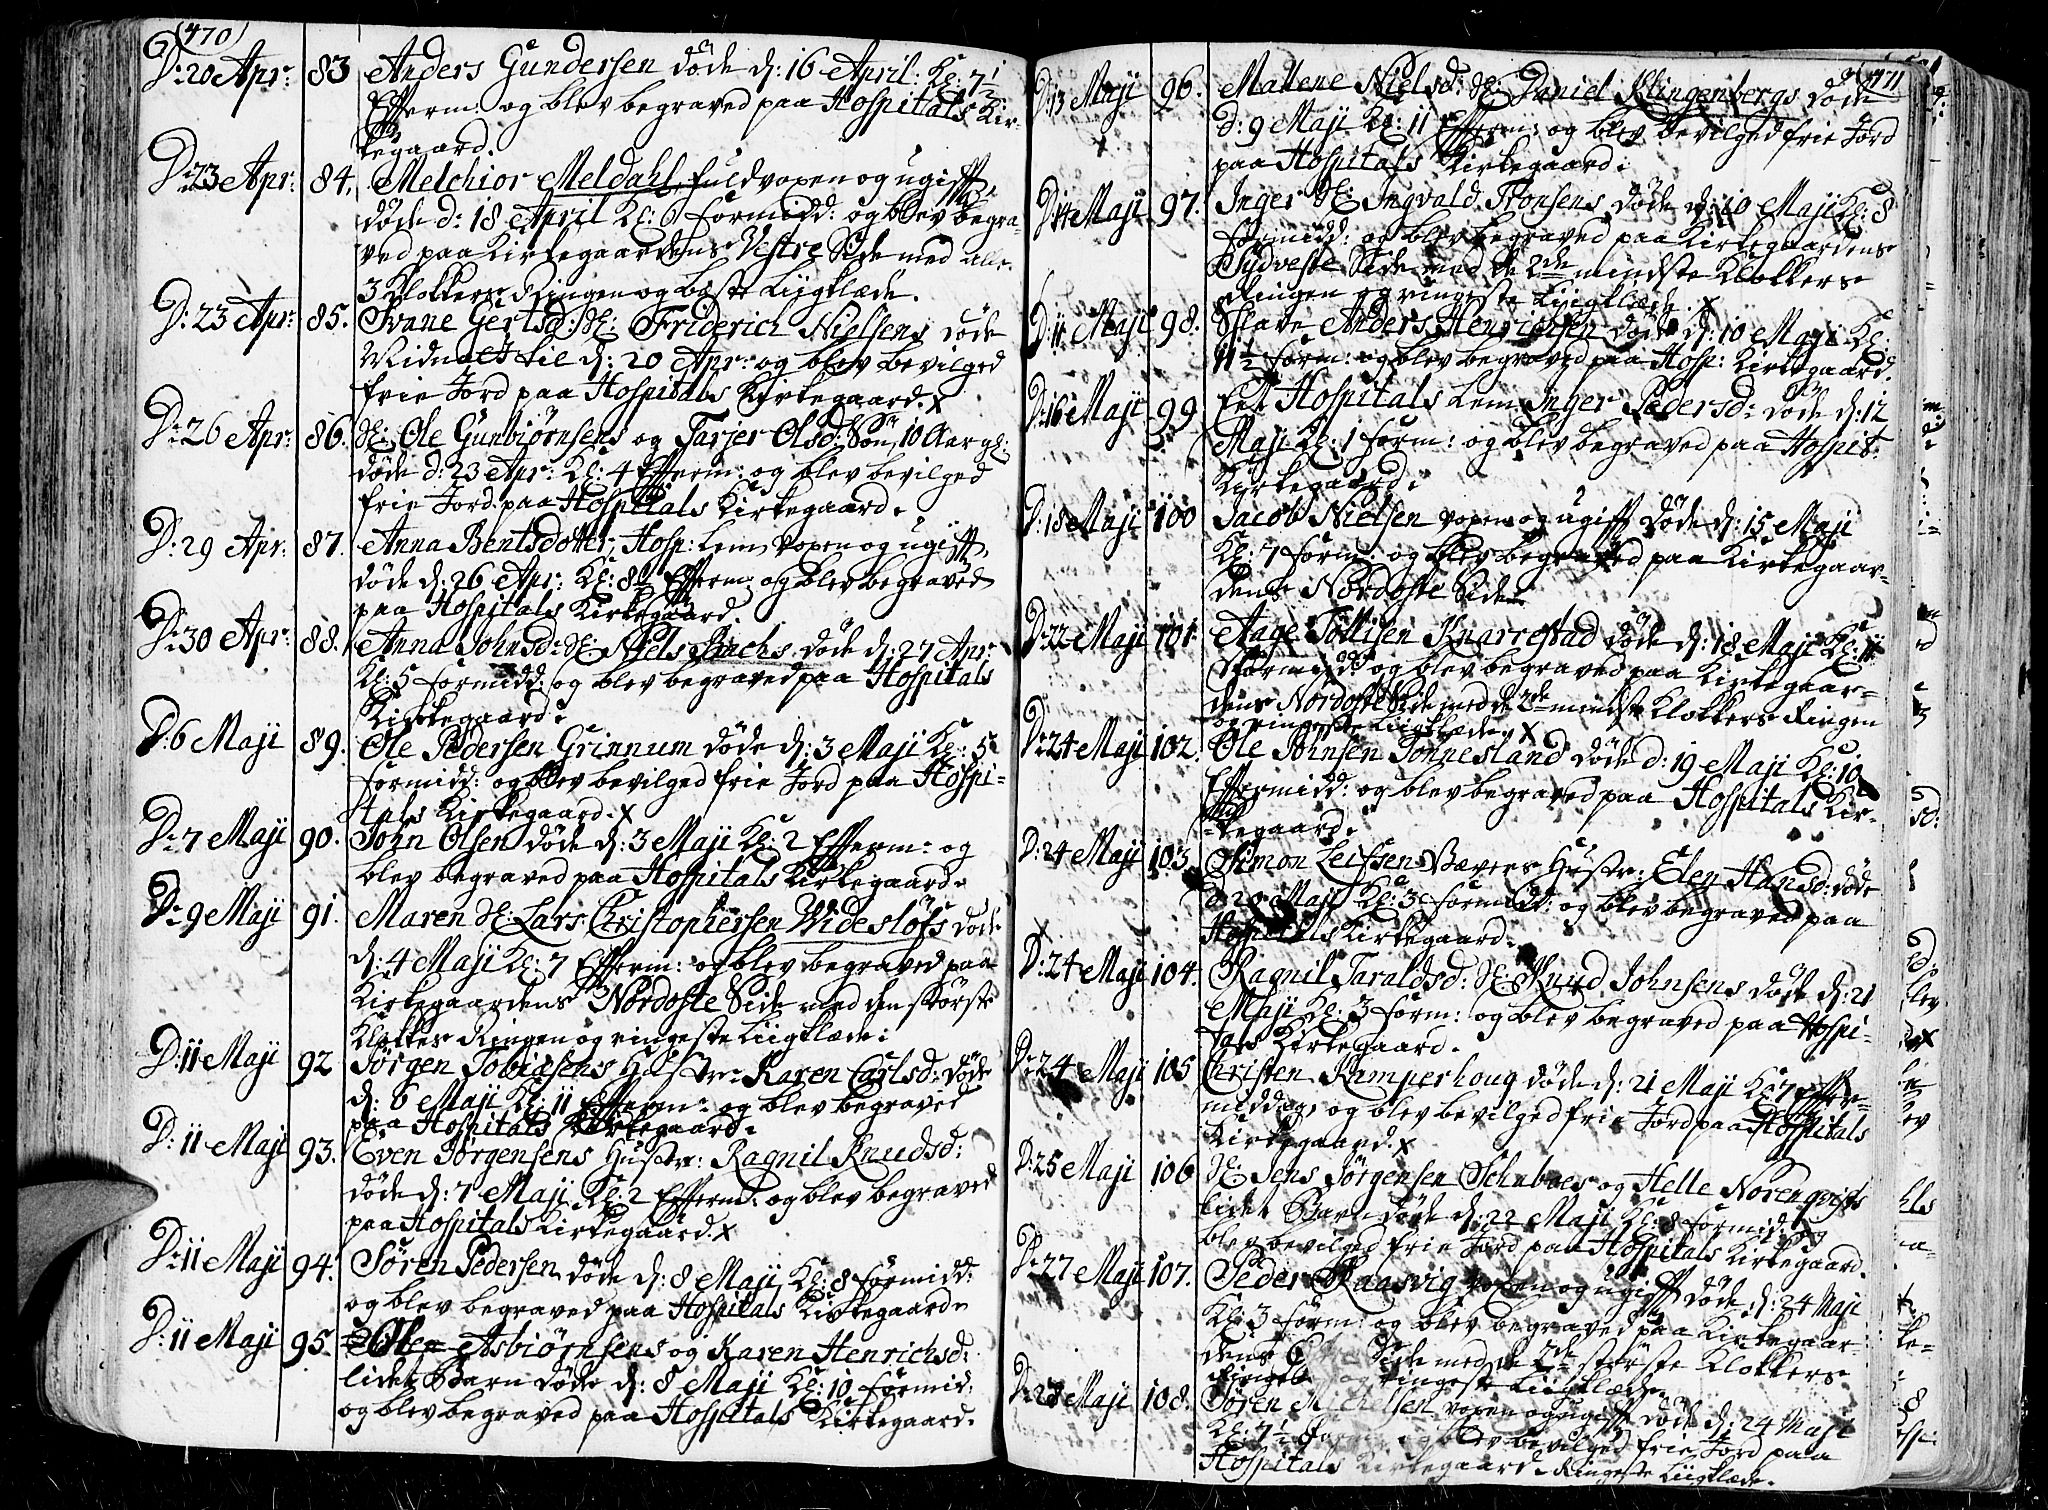 (470)
D: 20 Apr: 83 Anders Gundersen døde d: 16 April: Kl: 7½
Efterm: og blev begraved paa Hospitals Kir-
kegaard.
D: 23 Apr: 84. Melchior Meldahl, fuldvoxen og ugift
døde d: 18 April Kl: 6 formidd: og blev begra-
ved paa Kirkegaardens Vestre Side med alle
3 Klokkers Ringen og beste Liigklæde.
D: 23 Apr: 85. Svane Gertsd: Friderich Nielsens døde
Midnat til d: 20 Apr: og blev bevilged
frie Jord paa Hospitals Kirkegaard. x
D: 26 Apr: 86. Ole Gunbiørnsens og Tarjer Olsd: Søn, 10 Aar gl:
døde d: 23 Apr: Kl: 4 Efterm: og blev bevilged
frie Jord paa Hospitals Kirkegaard.
D: 29 Apr: 87. Anna Bentsdotter, Hosp: Lem, voxen og ugift,
døde d: 26 Apr: Kl: 8½ Efterm: og blev begraved
paa Hospitals Kirkegaard.
D: 30 Apr: 88. Anna Johnsd: Niels Bachs døde d: 27 Apr:
Kl: 5 formidd: og blev begraved paa Hospitals
Kirkegaard.
D: 6 Maji 89. Ole Pedersen Grinnum døde d: 3 Maji Kl: 5
formidd: og blev bevilged frie Jord paa Hospi-
tals Kirkegaard. x
D: 7 Maji 90. John Olsen døde d: 3 Maji Kl: 2 Efterm: og
blev begraved paa Hospitals Kirkegaard.
D: 9 Maji 91. Maren Lars Christophersen Widesløfs døde
d: 4 Maji Kl: 7 Efterm: og blev begraved paa
Kirkegaardens Nordoste Side med den største
Klokkes Ringen og ringeste Liigklæde:
D: 11 Maji 92 Jørgen Tobiæsens Hustr: Karen Carlsd: døde
d: 6 Maji Kl: 11 Efterm: og blev begraved
paa Hospitals Kirkegaard.
D: 11 Maji 93. Even Jørgensens Hustr: Ragnil Knudsd:
døde d: 7 Maji Kl: 2 Efterm: og blev begraved
paa Hospitals Kirkegaard. x
D: 11 Maji 94. Søren Pedersen døde d: 8 Maji Kl: 8 formidd:
og blev begraved paa Hospitals Kirkegaard
D: 11 Maji 95. Olen Asbiørnsens og Karen Henrichsd:
lidet Barn døde d: 8 Maji Kl: 10 formid:
og blev begraved paa Hospitals Kirkegaard.
(471)
D: 13 Maji 96. Mallene Nielsd: Daniel Klingenbergs døde
d: 9 Maji Kl: 11 Efterm: og blev bevilged frie Jord
paa Hospitals Kirkegaard:
D: 14 Maji 97. Inger Ingvald Tronsens døde d: 10 Maji Kl: 8
formidd: og blev begraved paa Kirkegaardens
Sydveste Side med de 2de mindste Klokkers
Ringen og ringeste Liigklæde. x
D: 11 Maji 98. Slave Anders Henrichsen døde d: 10 Maji Kl:
11½ form: og blev begraved paa Hosp: Kirkegaard.
D: 16 Maji 99 Et Hospitals Lem Inger Pedersd: døde d: 12
Maji Kl: 1 form: og blev begraved paa Hospit:
Kirkegaard.
D: 18 Maji 100 Jacob Nielsen voxen og ugift døde d: 15 Maji
Kl: 7 form: og blev begraved paa Kirkegaar-
dens Nordoste Side
D: 22 Maji 101. Aage Tollisen Knarrestad døde d: 18 Maji Kl: 11
formidd: og blev begraved paa Kirkegaar-
dens Nordoste Side med de 2de mindste Klokkers Ringen
og ringeste Liigklæde. x
D: 24 Maji 102. Ole Johnsen Tonnesland døde d: 19 Maji Kl: 10
Eftermidd: og blev begraved paa Hospitals Kir-
kegaard.
D: 24 Maji 103. Simon Leifsen Bævers Hustr: Elen Hansd: døde
d: 20 Maji Kl: 3 formidd: og blev begraved paa
Hospitals Kirkegaard.
D: 24 Maji 104. Ragnil Taraldsd: Knud Johnsens døde d: 21
Maji Kl: 3 form: og blev begraved paa Hospi-
tals Kirkegaard.
D: 24 Maji 105 Christen Kumperhoug døde d: 21 Maji Kl: 7 Efter-
middag, og blev bevilged frie Jord paa Hospitals
Kirkegaard. x
D: 25 Maji 106 Jens Jørgensen Schuboes og Helle Norenqvists
lidet Barn døde d: 22 Maji Kl: 8 formid: og
blev bevilged frie Jord paa Hospitals Kirkegaard.
D: 27 Maji 107. Peder Raasvig voxen og ugift døde d: 24 Maji
Kl: 3 form: og blev begraved paa Kirkegaar-
dens Side med de 2de største Klokkers
Ringen og ringeste Liigklæde
D: 28 Maji 108. Søren Michelsen voxen og ugift døde d: 24 Maji
Kl: 7½ og blev bevilged frie Jord paa
Hospitals Kirkegaard Ringeste Liigklæde.